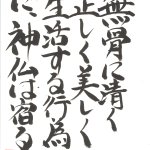 無骨に清く
正しく美しく
生活する行為
に神仏は宿る